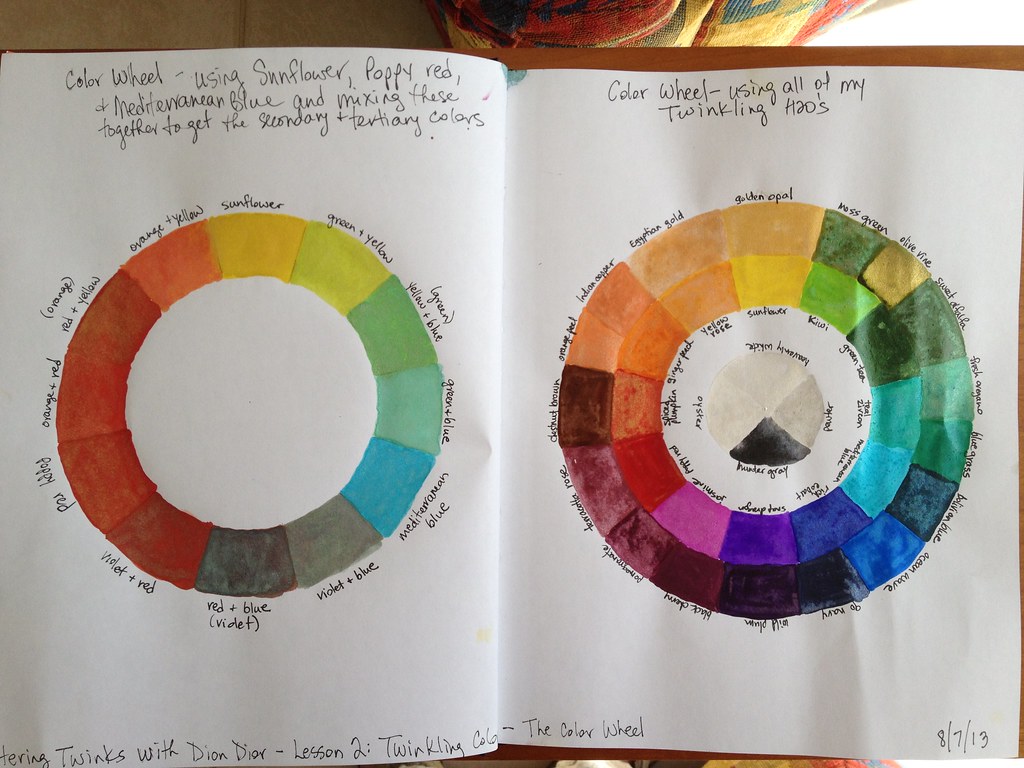 Color Wheel - using Sunflower, Poppy red,
+ Mediterranean Blue and mixing these
together to get the secondary + tertiary colors
sunflower
green + yellow
yellow + blue
(green)
green + blue
mediterranean
blue
violet + blue
red + blue
(violet)
violet + red
poppy
red
orange + red
red + yellow
(orange)
orange + yellow
Color Wheel - using all of my
Twinkling H2O's
golden opal
moss green
olive vine
sweet alfalfa
fresh oregano
blue grass
bolivian blue
ocean wave
go navy
wild plum
black cherry
pomegranate
terracotta rose
chestnut brown
orange peel
Indian copper
Egyptian gold
sunflower
Kiwi
green tea
teal
zircon
mediterranean
blue
rich
cobalt
snapdragon
jasmine
poppy red
spiced
pumpkin
ginger peel
yellow
rose
heavenly white
thunder gray
oyster
tering Twinks with Dion Dior - Lesson 2: Twinkling Colo - The Color Wheel
8/7/13